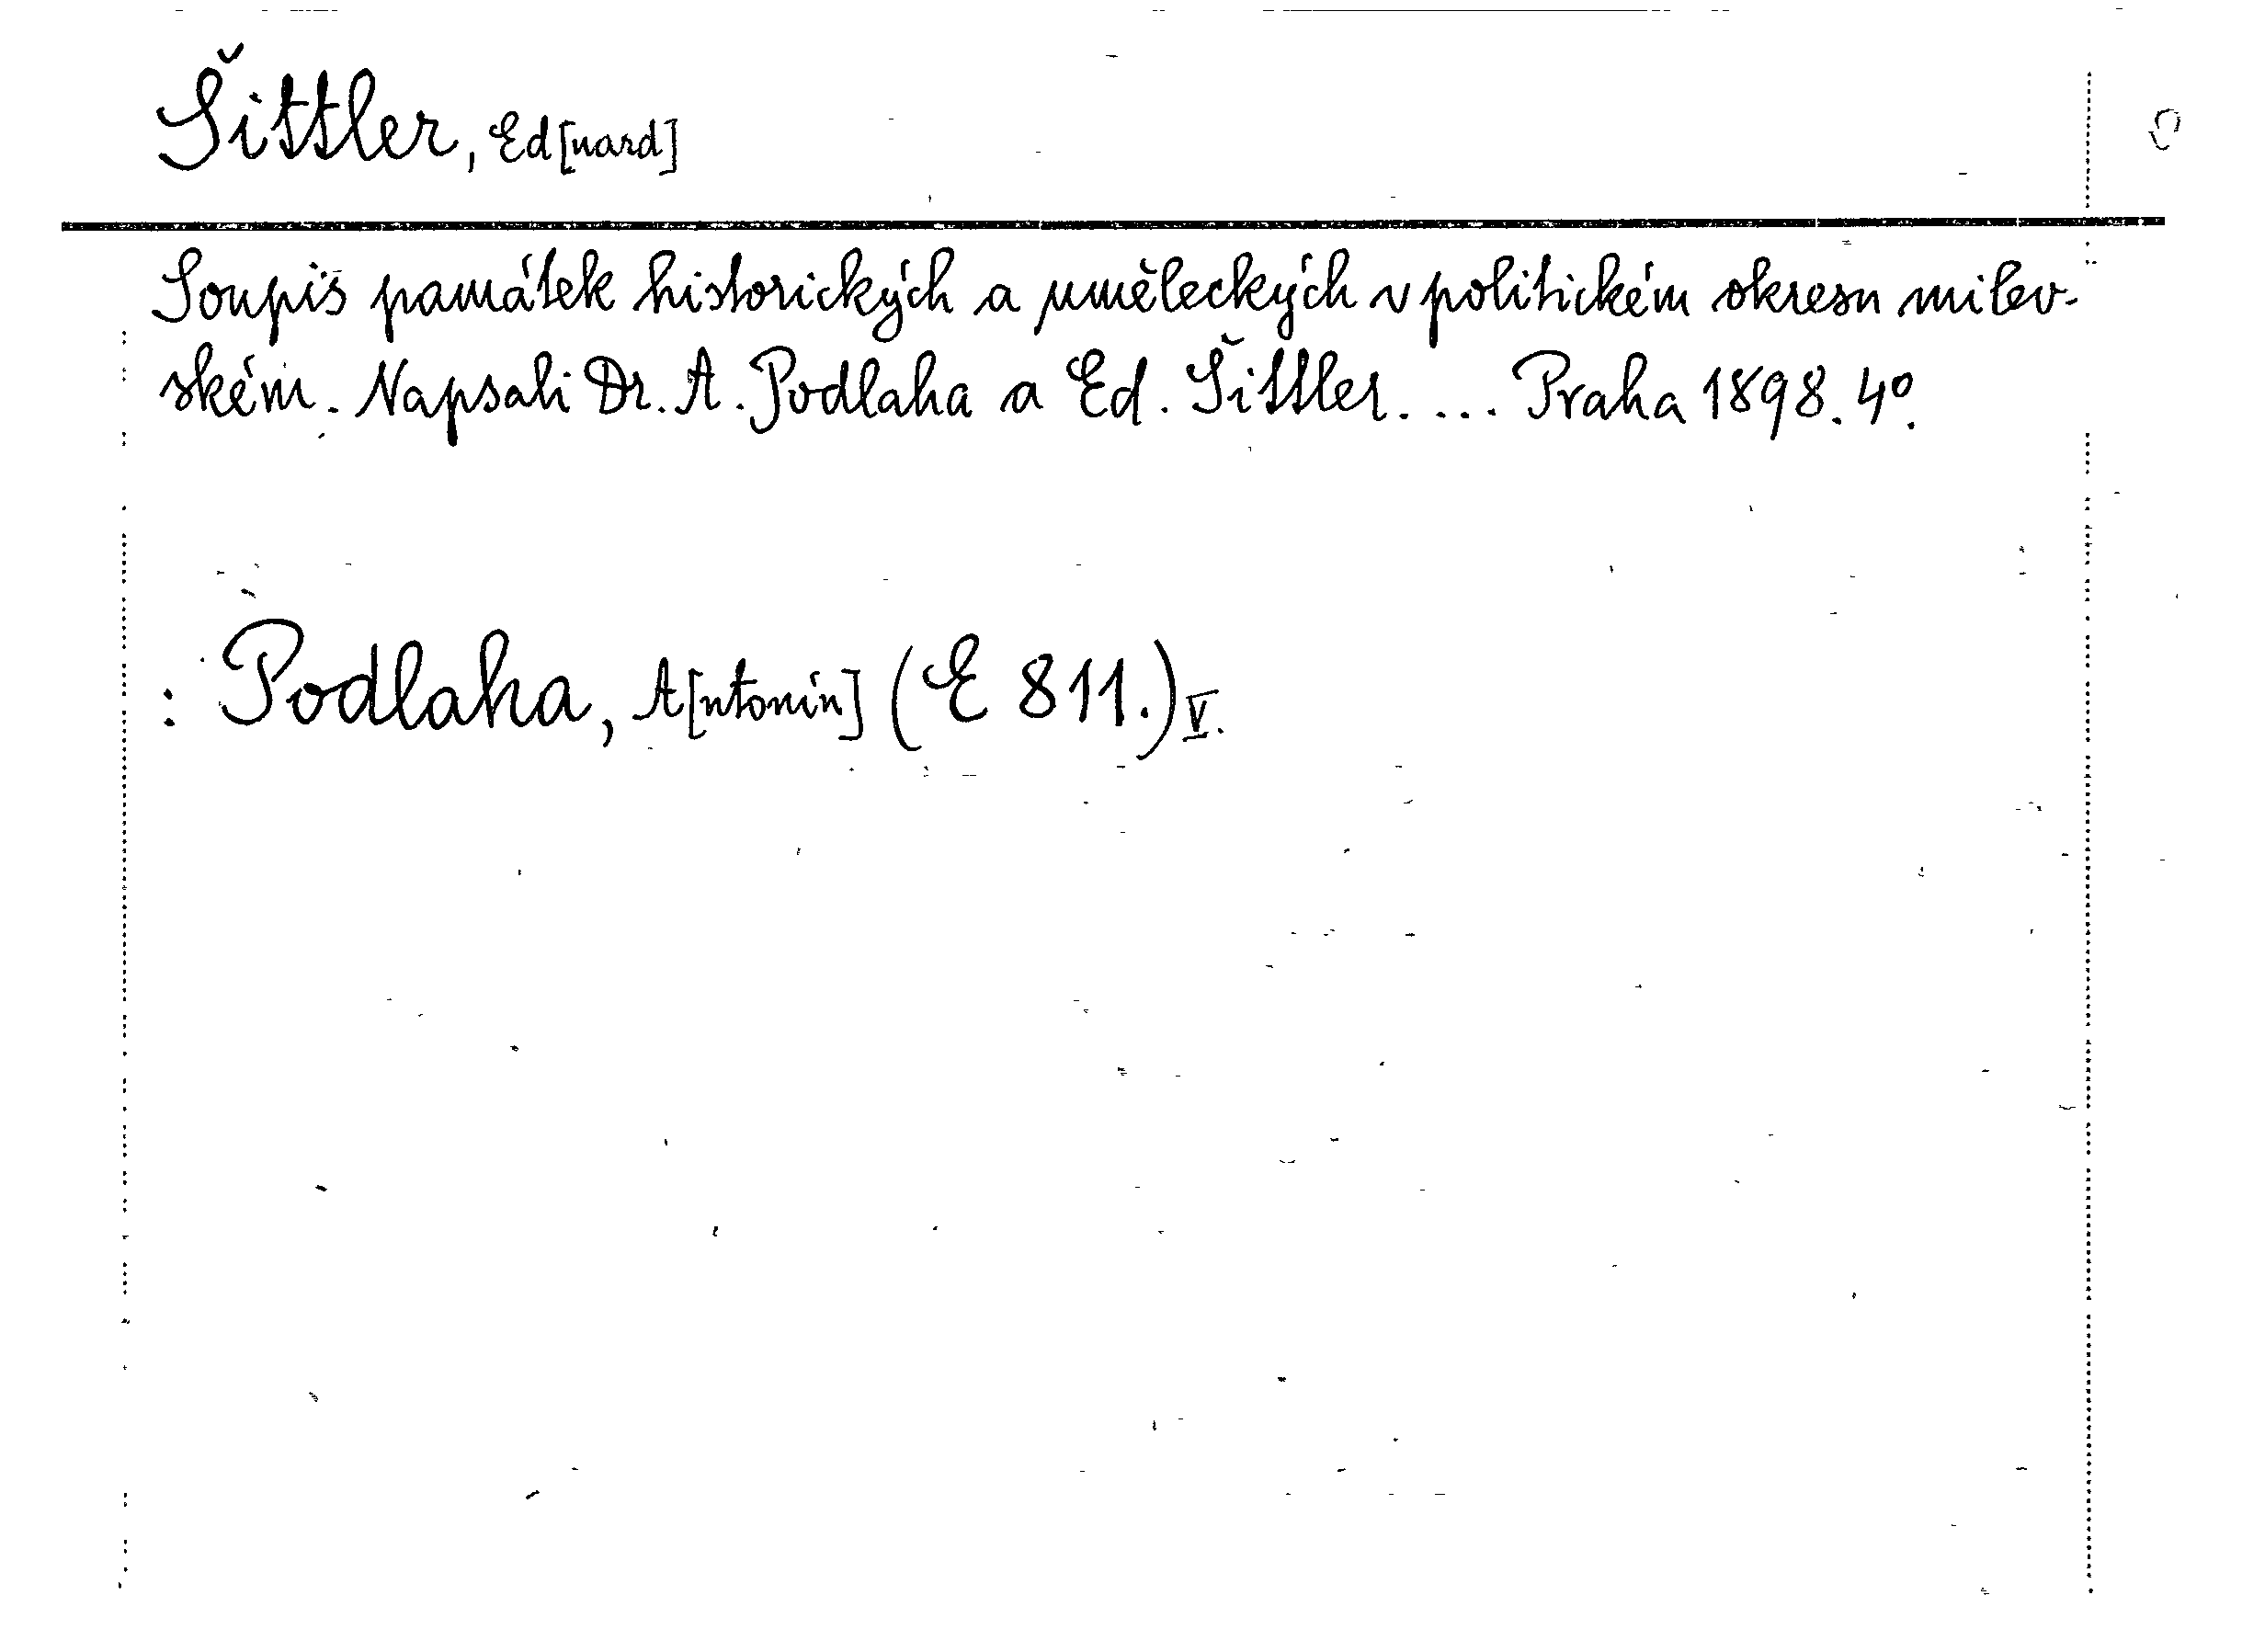 Šittler, Ed[uard]
Soupis památek historických a uměleckých v politickém okresu milev-
ském. Napsali Dr. A. Podlaha a Ed. Šittler. ... Praha 1898. 4º.
: Podlaha, A[ntonín] (E 811.) V.